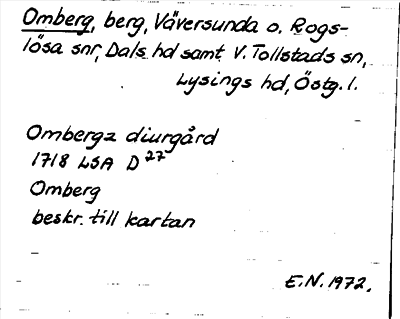 Omberg, berg, Väversunda o. Rogs-
lösa snr, Dals hd samt V. Tollstads sn,
Lysings hd, Östg. l.
Ombergz diurgård
1718 LSA D 27
Omberg
beskr. till kartan
E.N. 1972.